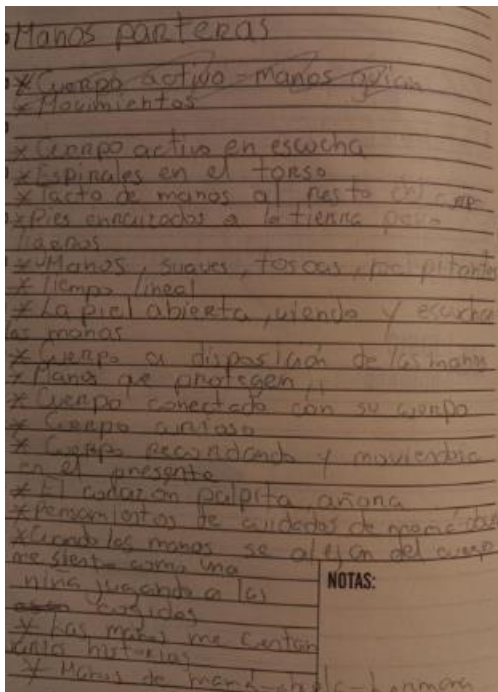 Manos parteras
* Cuerpo activo = manos guian
* Movimientos
* Cuerpo activo en escucha
* Espirales en el torso
* Tacto de manos al resto del
* Pies enraizados a la tierra pero
ligeros
* Manos, suaves, toscas, palpitantes
* Tiempo lineal
* La piel abierta, viendo y escucha
las manos
* Cuerpo a disposición de las manos
* Manos que protegen
* Cuerpo conectado con su cuerpo
* Cuerpo curioso
* Cuerpo recordando y moviendose
en el presente
* El corazón palpita
* Pensamientos de cuidados de mamá
* Cuando las manos se alejan del cuerpo
me siento como una
niña jugando a las
cogidas
* Las manos me cuentan
historias
* Manos de mamá-abuela-hermana
NOTAS: